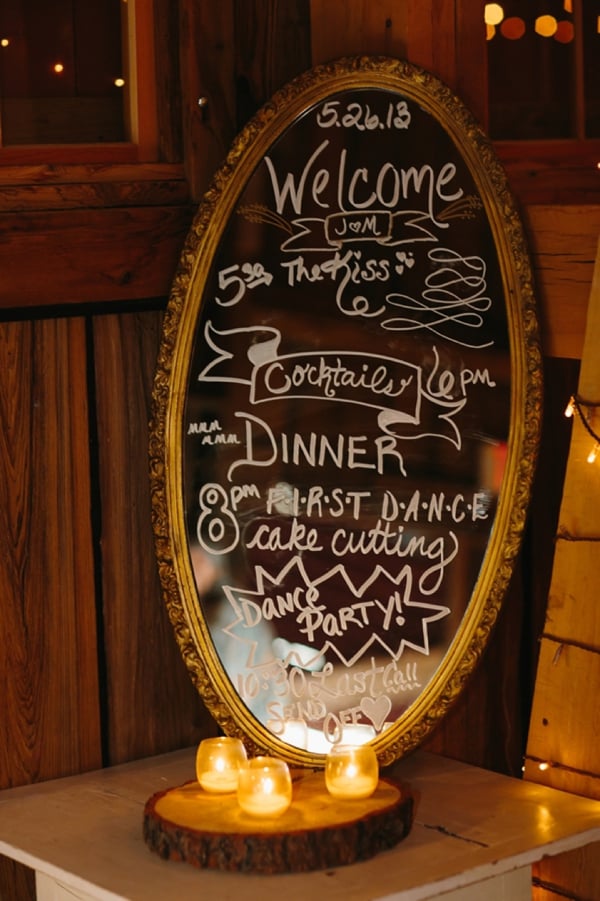 5.26.13
Welcome
J♥M
5:30 The Kiss
Cocktails 6PM
mmm
mmm DINNER
8pm F·I·R·S·T D·A·N·C·E
cake cutting
DANCE
PARTY!
10:30 Last Call
SEND
OFF ♥